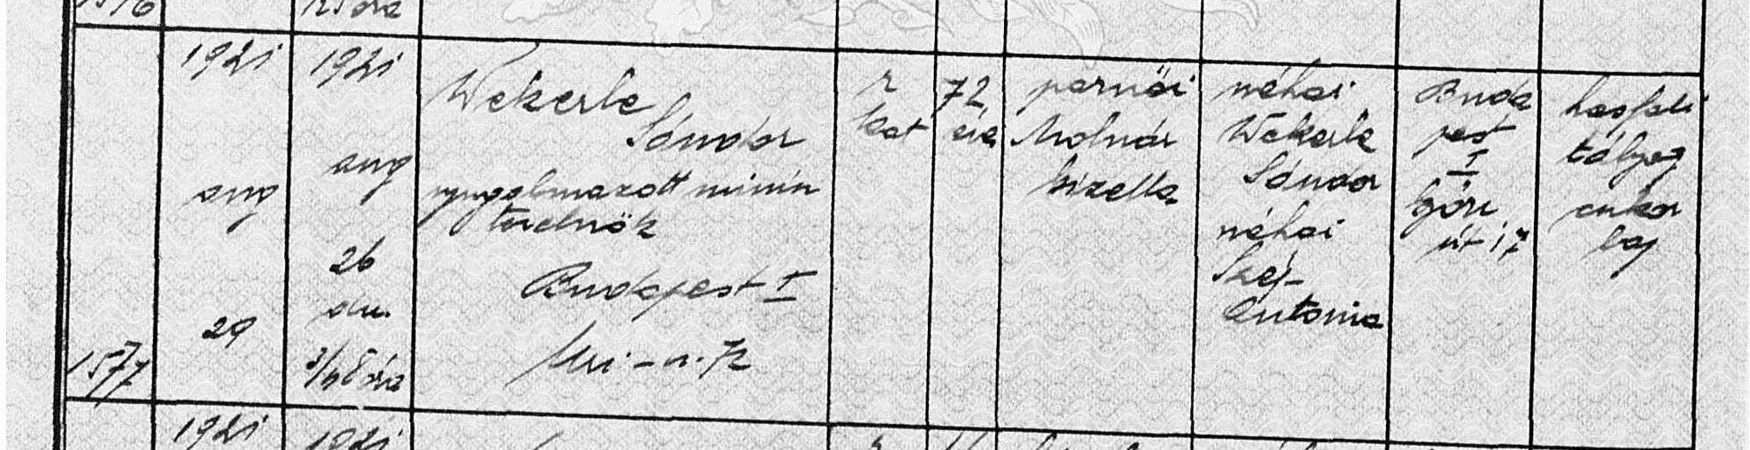 1576
1921
aug
29
1577
1921
aug
26
du.
3/4 5 óra
Wekerle
Sándor
nyugalmazott minis
terelnök
Budapest I
Uri-u. 72
r
kat
72
éve
parnói
Molnár
Gizella
néhai
Wekerle
Sándor
néhai
Szép
Antonia
Buda
pest
I
Győri
út 17
hasfali
tályog
cukor
baj
1921
1921